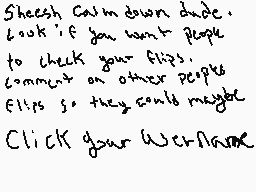 Sheesh Calm down dude.
Look if you want people
to check your flips.
comment on other peoples
flips so they could maybe
Click your Username